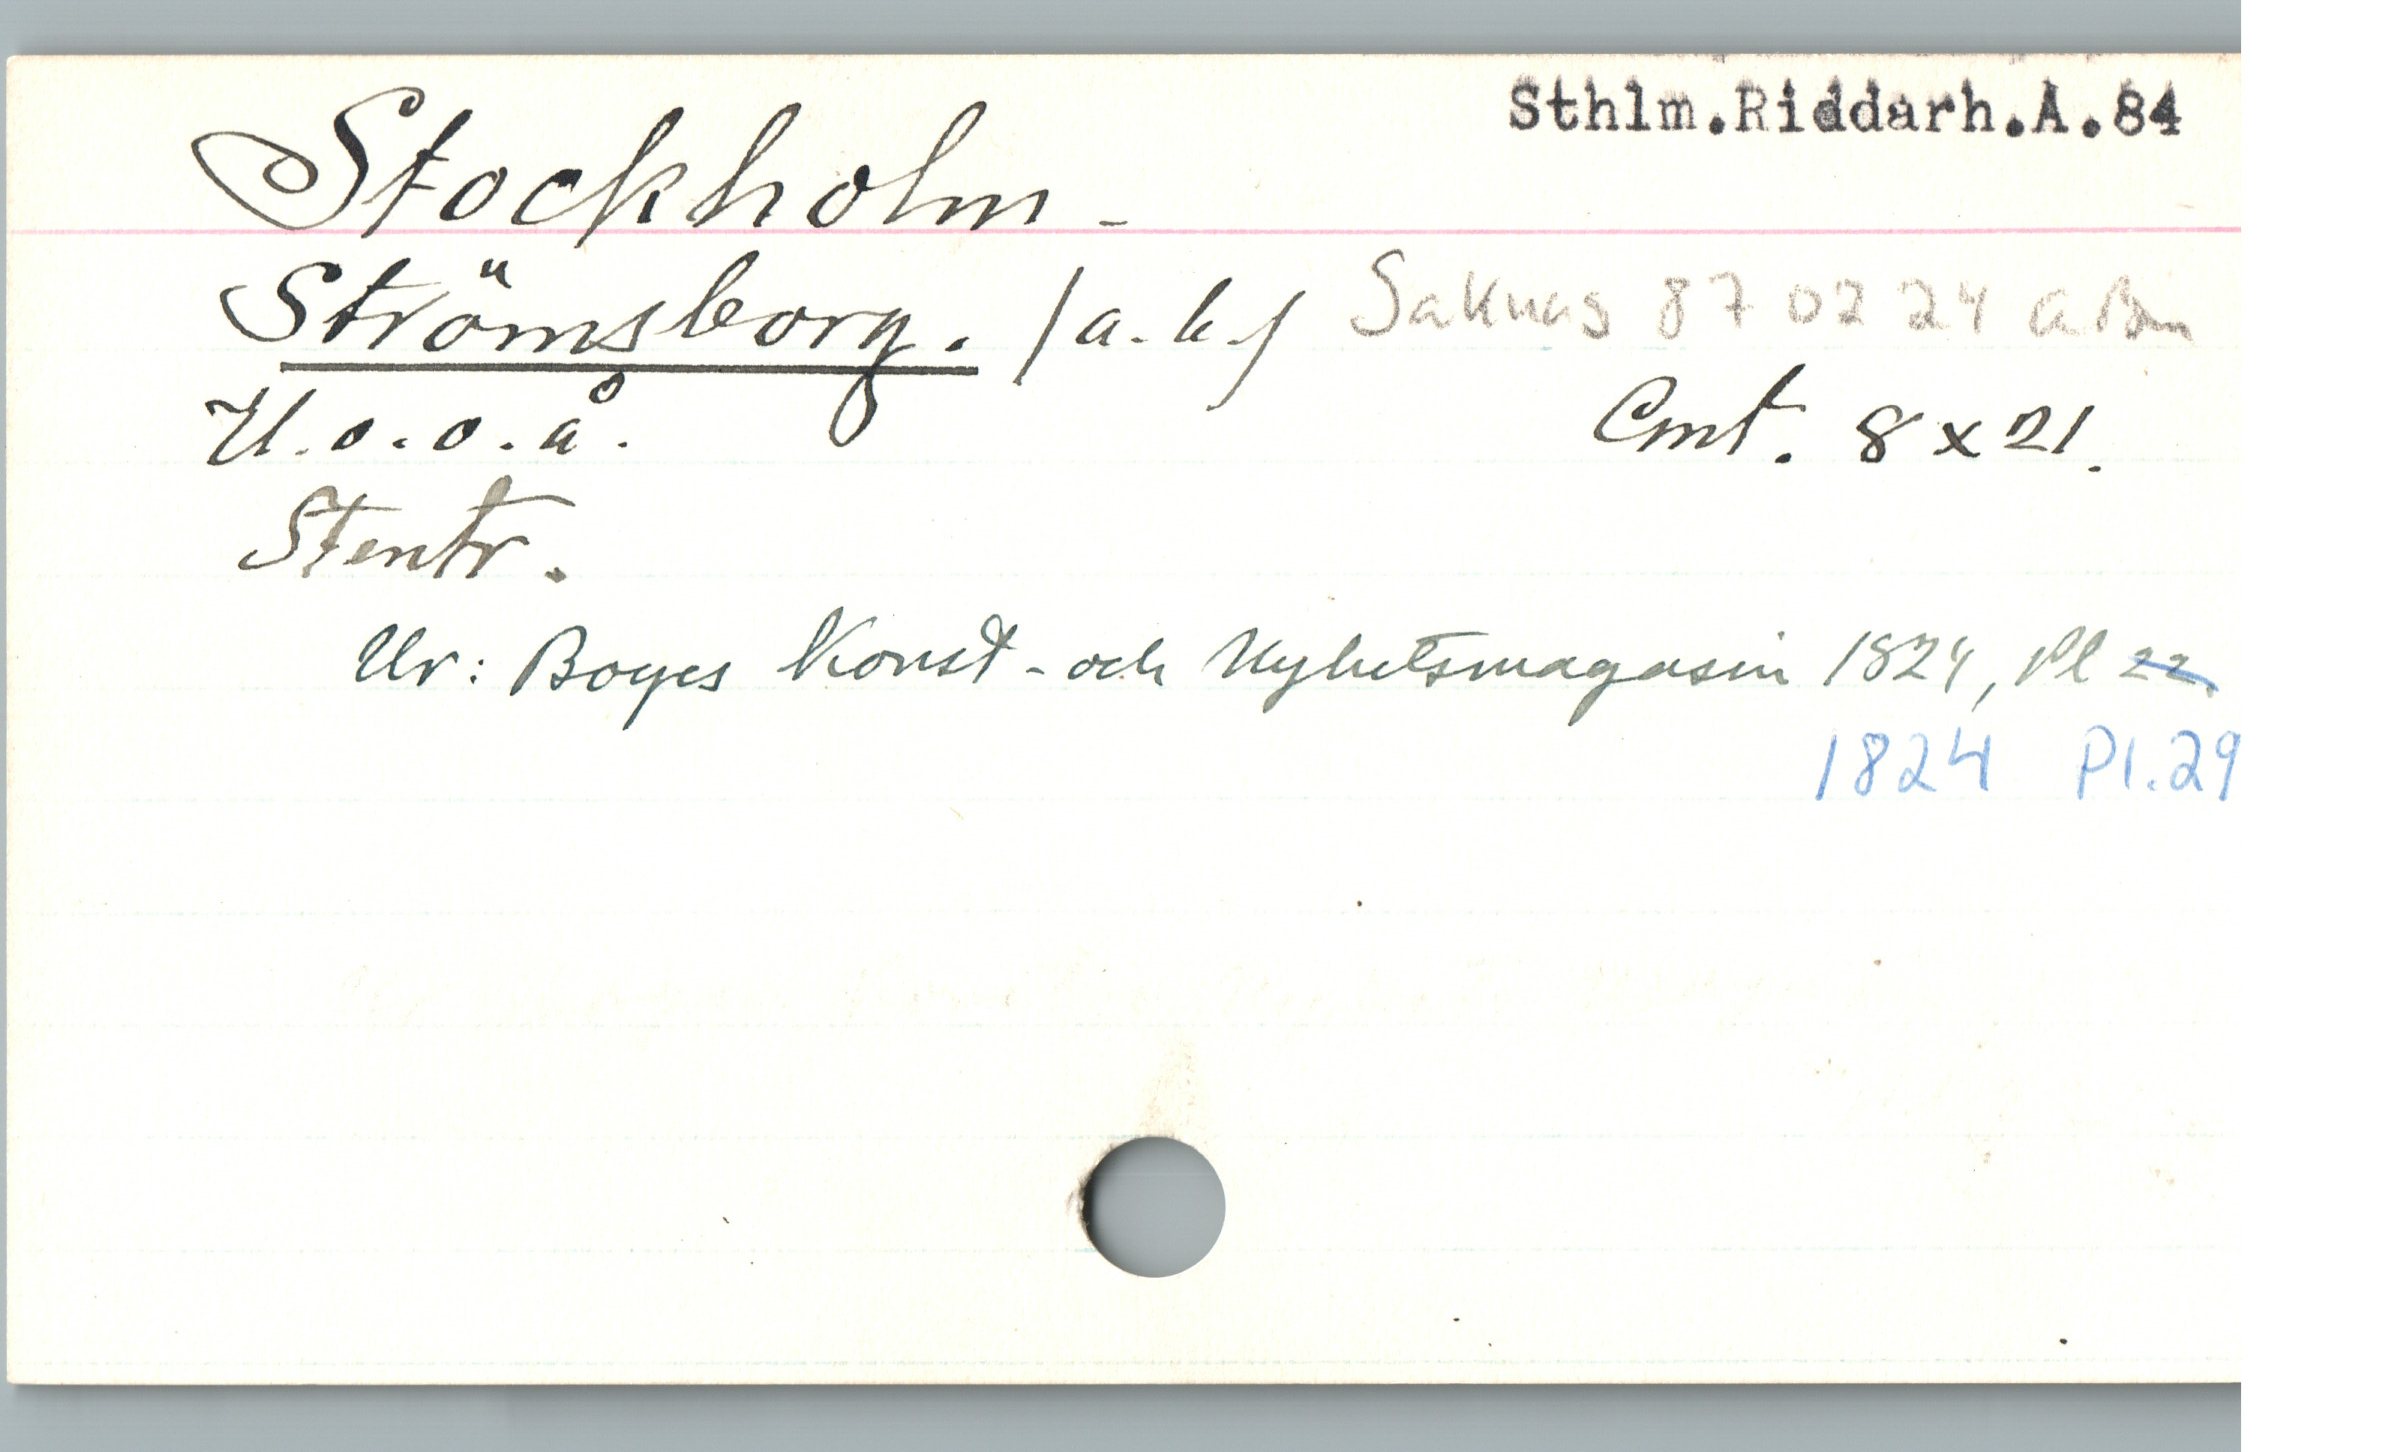 Sthlm.Riddarh.A.84
Stockholm -
Strömsborg. /a.k./ Saknas 87 02 24
U.o.o.å. Cmt. 8 x 21.
Stentr.
Ur: Boyes Konst- och Nyhetsmagasin 1824, Pl 22.
1824 Pl.29